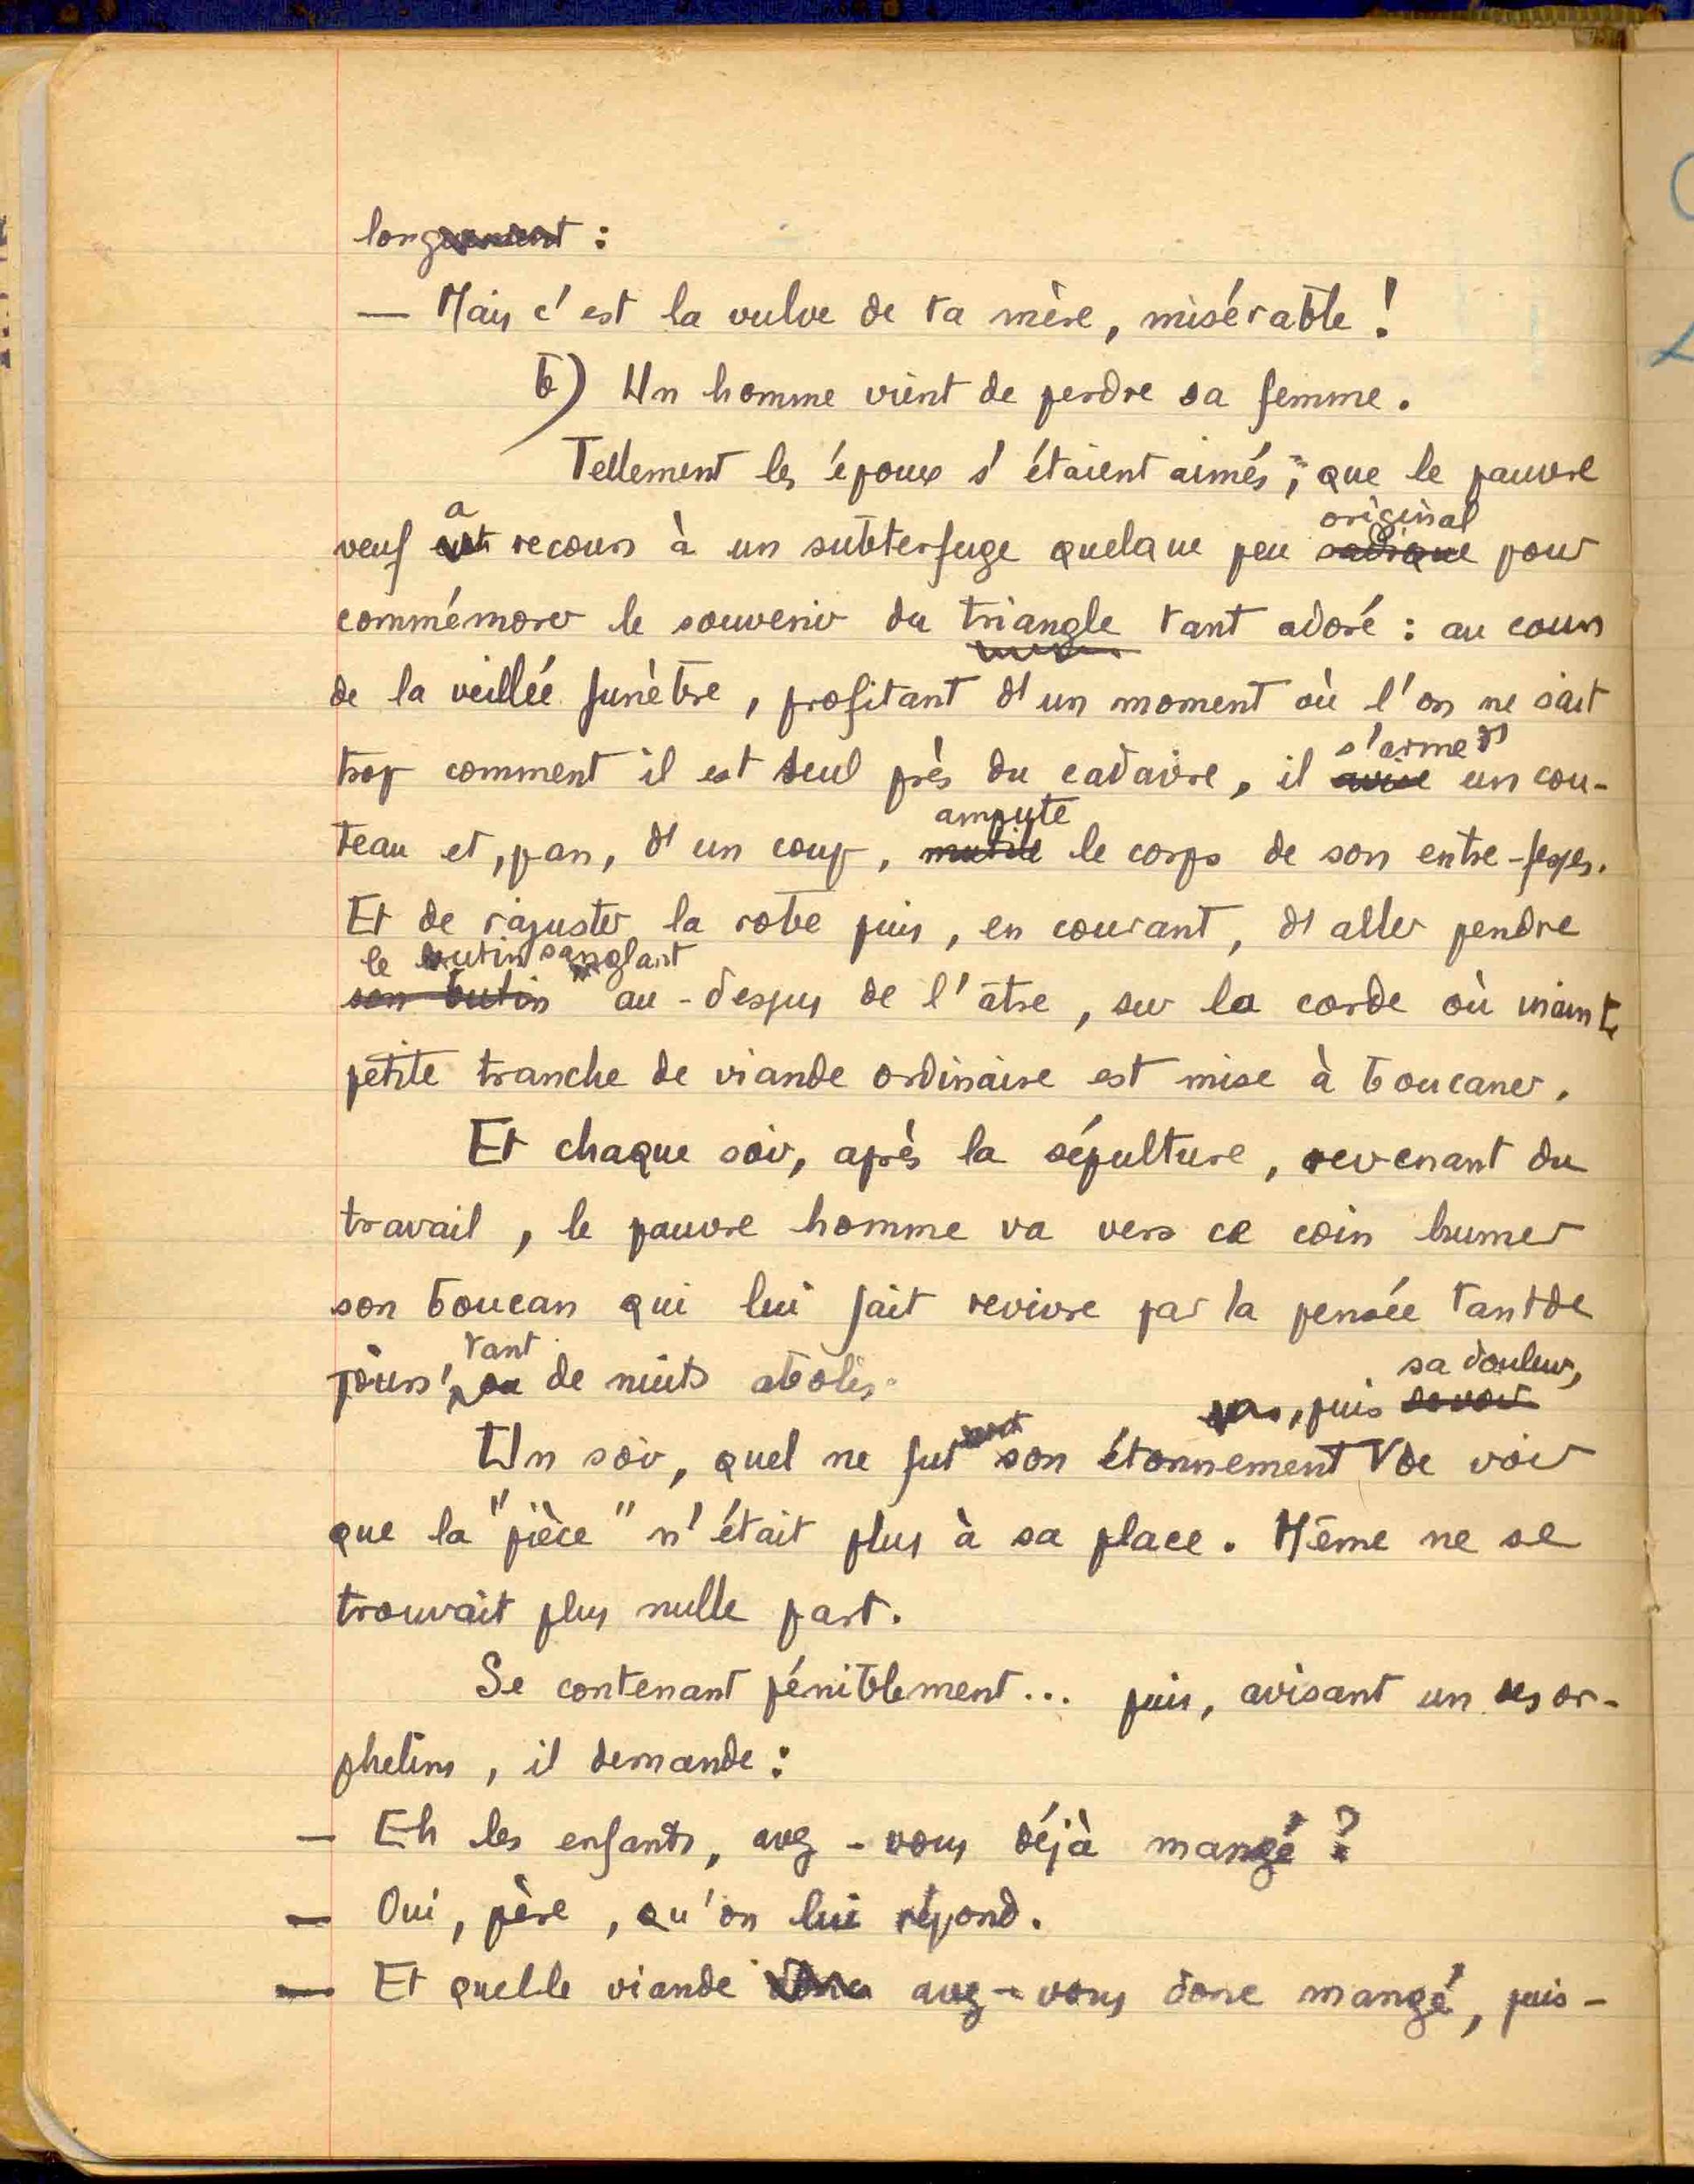 longuement :
— Mais c'est la vulve de ta mère, misérable !
b) Un homme vient de perdre sa femme.
Tellement les époux s'étaient aimés, que le pauvre
a original
veuf eut recours à un subterfuge quelque peu sadique pour
commémorer le souvenir du triangle tant adoré : au cours
de la veillée funèbre, profitant d'un moment où l'on ne sait
s'arme d'
trop comment il est seul près du cadavre, il avise un cou-
ampute
teau et, pan, d'un coup, mutile le corps de son entre-fesses.
Et de rajuster la robe puis, en courant, d'aller pendre
le butin sanglant
son butin au-dessus de l'âtre, sur la corde où mainte
petite tranche de viande ordinaire est mise à boucaner.
Et chaque soir, après la sépulture, revenant du
travail, le pauvre homme va vers ce coin humer
son boucan qui lui fait revivre par la pensée tant de
tant sa douleur,
jours, ou de nuits abolis.
puis de voir
Un soir, quel ne fut son étonnement de voir
que la "pièce" n'était plus à sa place. Même ne se
trouvait plus nulle part.
Se contenant péniblement... puis, avisant un des or-
phelins, il demande :
— Eh les enfants, avez-vous déjà mangé ?
— Oui, père, qu'on lui répond.
— Et quelle viande donc avez-vous donc mangé, puis-